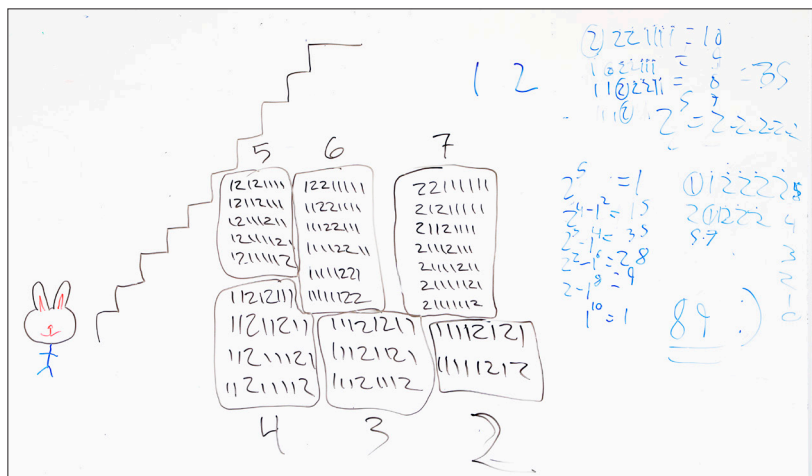 1 2
5
12121111
12112111
12111211
12111121
12111112
6
12211111
11221111
11122111
11112211
11111221
11111122
7
22111111
21211111
21121111
21112111
21111211
21111121
21111112
11212111
11211211
11211121
11211112
4
11121211
11121121
11121112
3
11112121
11111212
2
2221111 = 10
= 35
2^5 = 1
2^4-1^2 = 15
2^3-1^4 = 35
2^2-1^6 = 28
2-1^8 = 9
1^10 = 1
5.7
4
3
2
1
89 :)